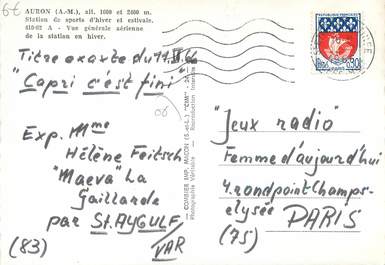 6€
AURON (A.-M.), alt. 1600 et 2400 m.
Station de sports d'hiver et estivale.
610-62 A - Vue générale aérienne
de la station en hiver.
Titre exaxte du
"Capri c'est fini"
06
Exp. Mme
Hélène Feitsch
"Maeva" La
Gaillarde
par St. AYGULF
(83) VAR
COMBIER IMP. MACON (S.-et-L.) "CIM"
Photographie Véritable - Reproduction Interdite
REPUBLIQUE FRANÇAISE
PARIS
0,30
"Jeux radio"
Femme d'aujourd'hui
4. rondpoint Champs-
elysée
PARIS
(75)